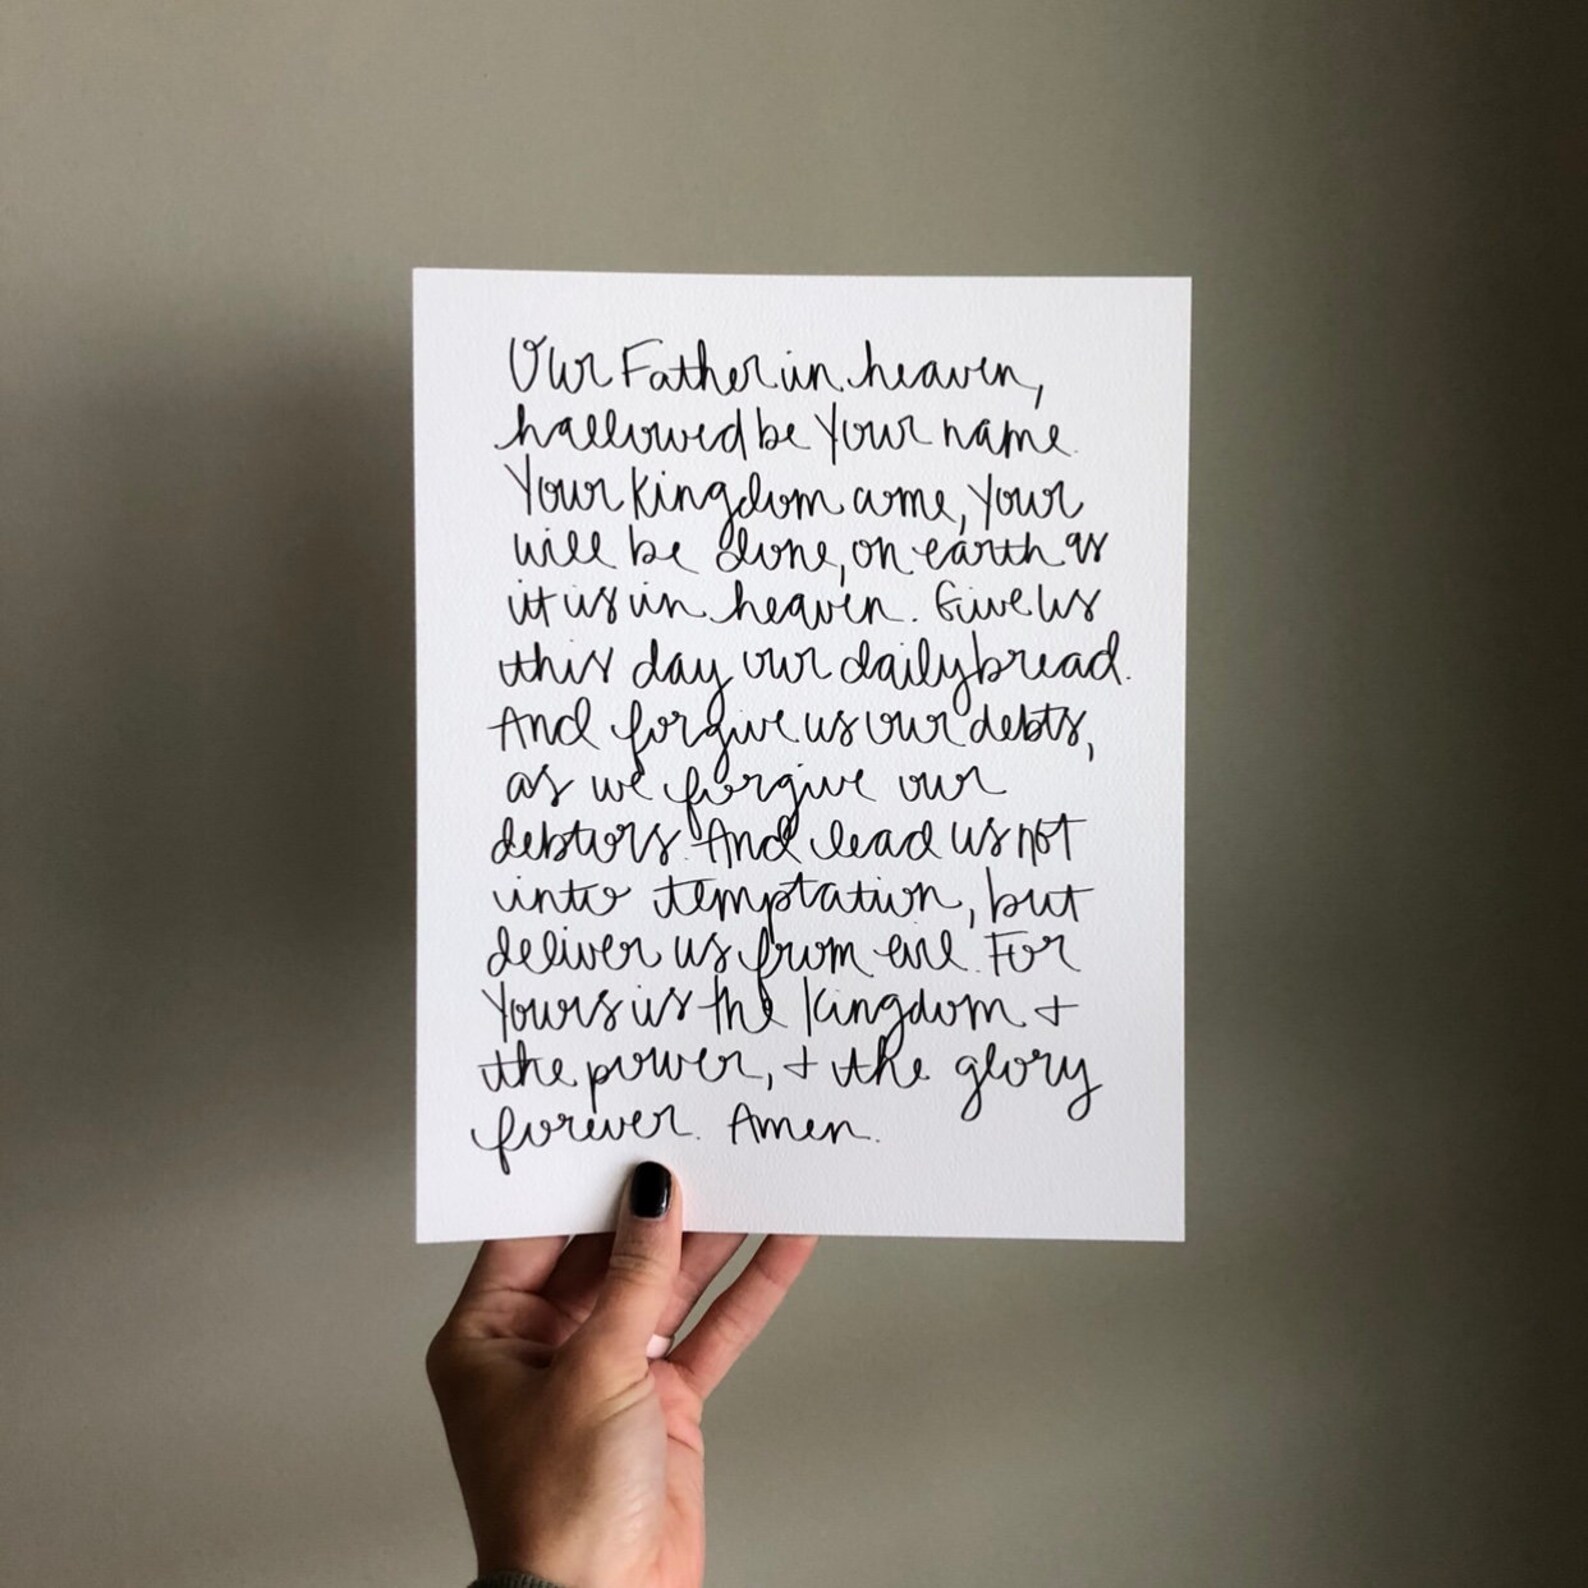 Our Father in heaven,
hallowed be Your name.
Your Kingdom come, Your
will be done, on earth as
it is in heaven. Give us
this day our daily bread.
And forgive us our debts,
as we forgive our
debtors. And lead us not
into temptation, but
deliver us from evil. For
Yours is the Kingdom +
the power, + the glory
forever. Amen.